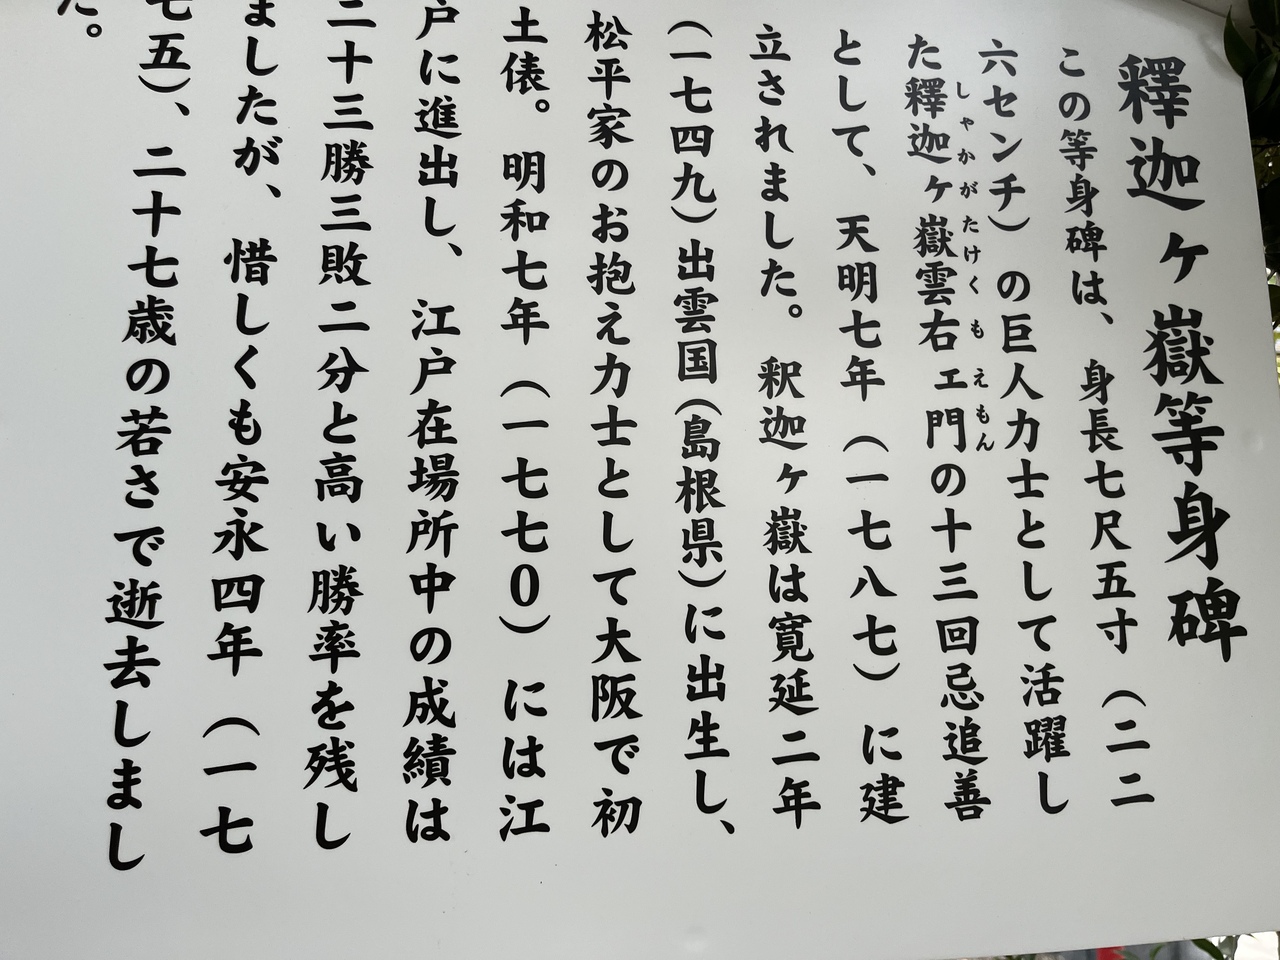 釋迦ヶ嶽等身碑
この等身碑は、身長七尺五寸（二二
六センチ）の巨人力士として活躍し
た釋迦ヶ嶽雲右エ門の十三回忌追善
しゃかがたけくもえもん
として、天明七年（一七八七）に建
立されました。釈迦ヶ嶽は寛延二年
（一七四九）出雲国（島根県）に出生し、
松平家のお抱え力士として大阪で初
土俵。明和七年（一七七0）には江
戸に進出し、江戸在場所中の成績は
二十三勝三敗二分と高い勝率を残し
ましたが、惜しくも安永四年（一七
七五）、二十七歳の若さで逝去しまし
た。